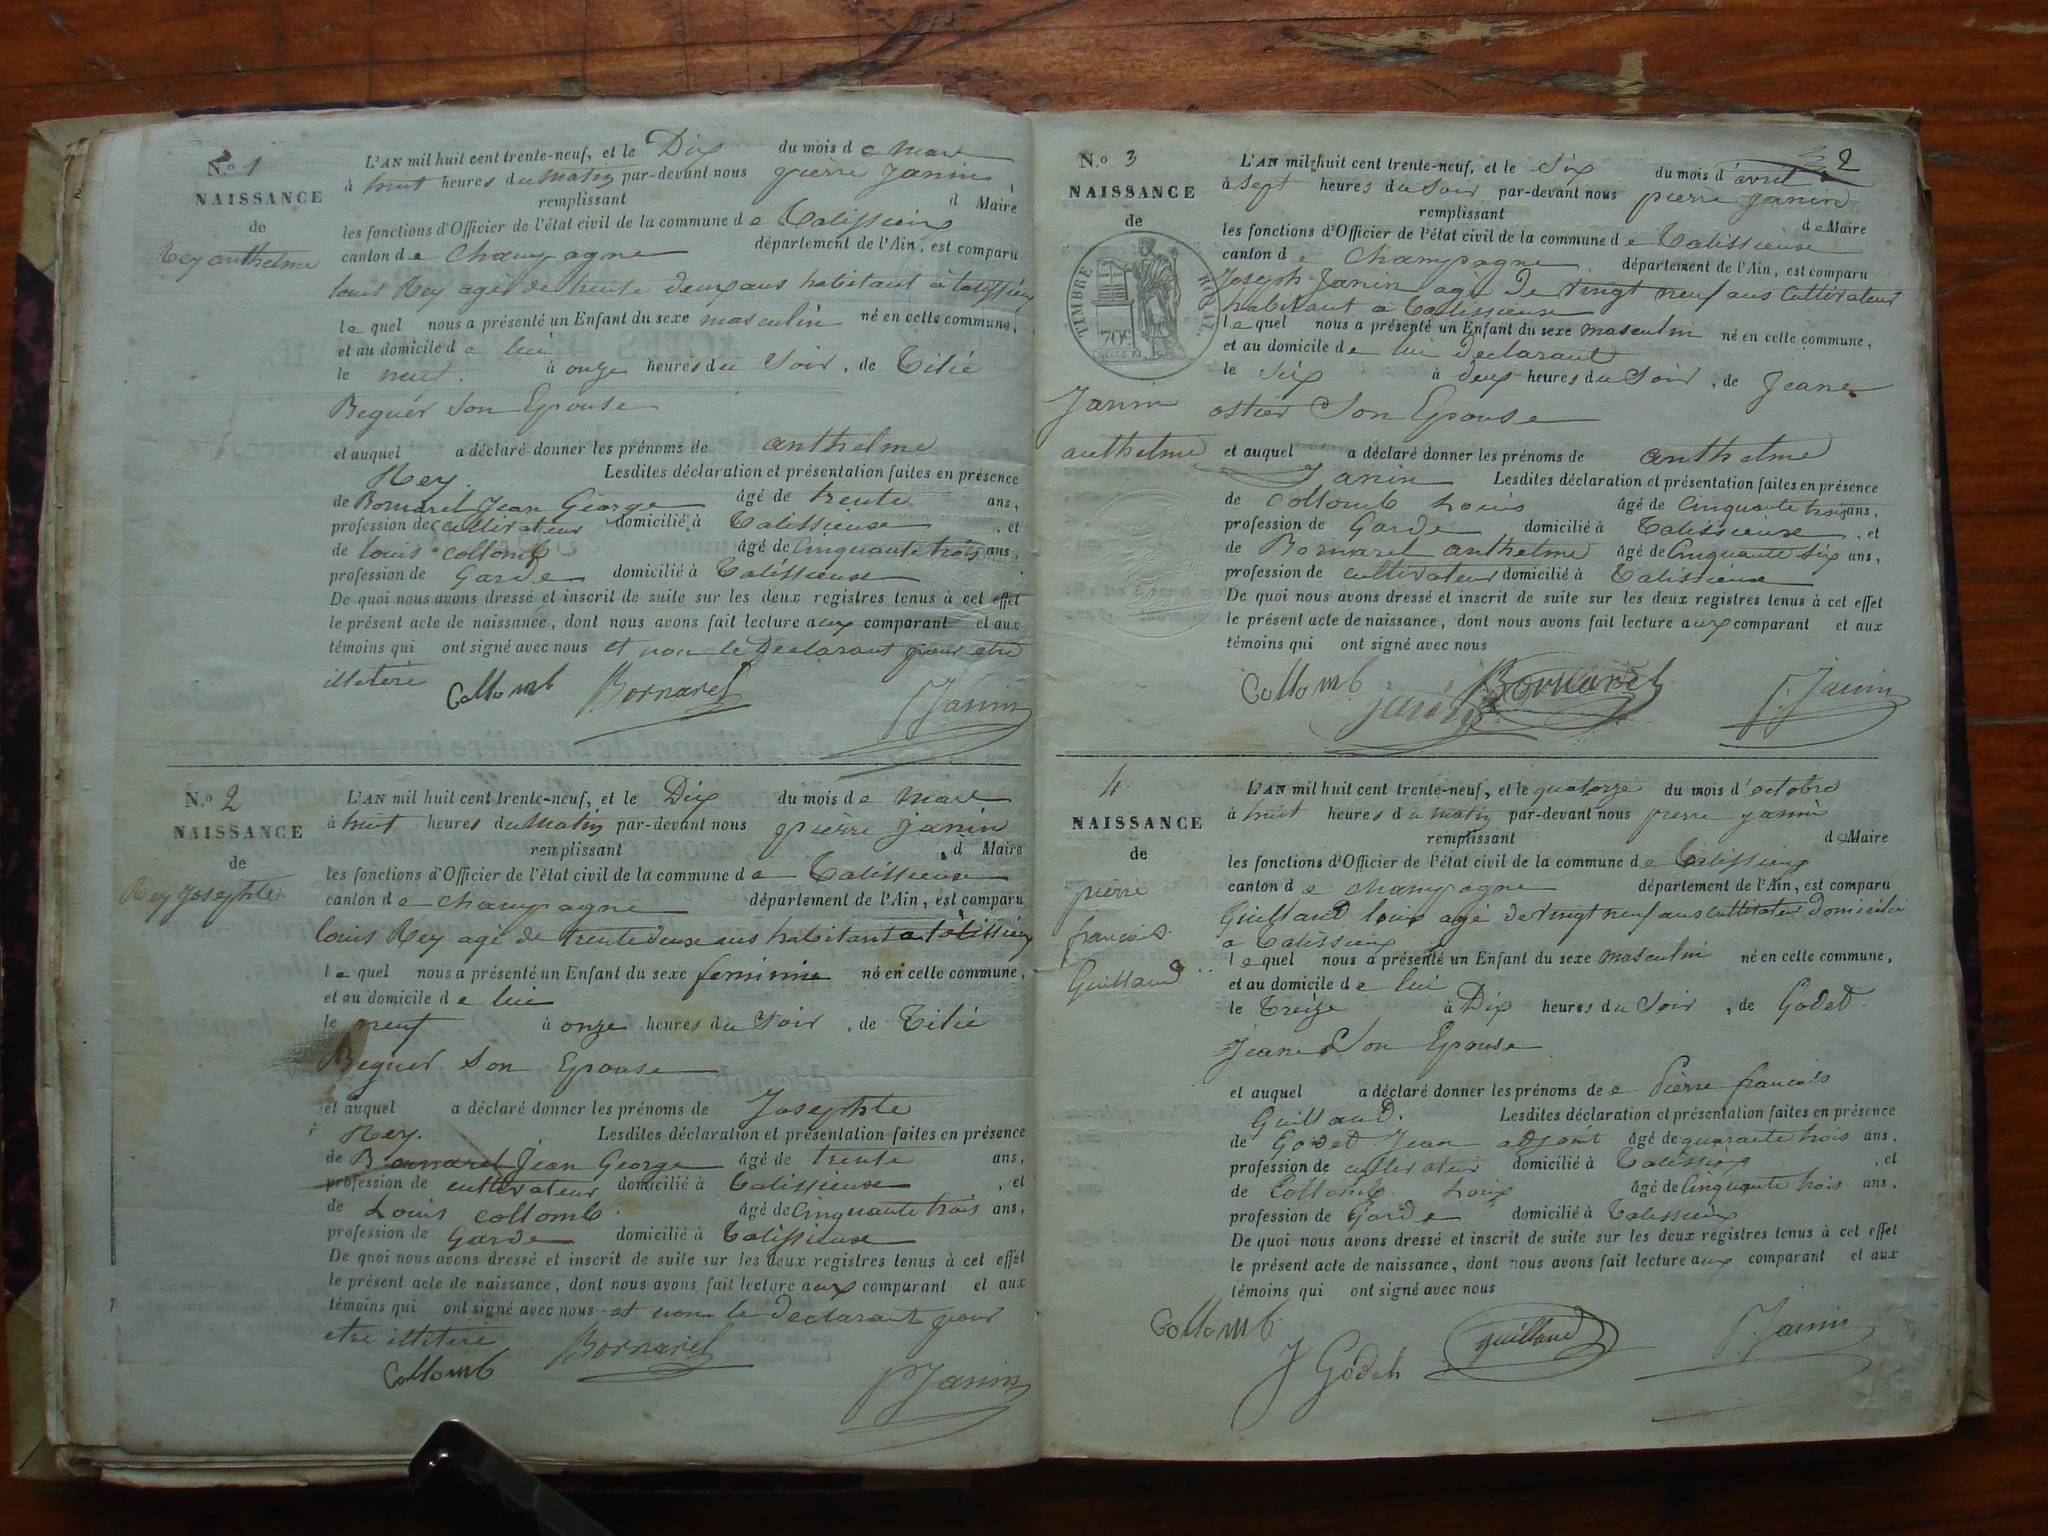 N.º 1
NAISSANCE
de
Rey anthelme
L'AN mil huit cent trente-neuf, et le Dix du mois d e mars
à huit heures du matin par-devant nous pierre Janin
remplissant d Maire
les fonctions d'Officier de l'état civil de la commune d e Talissieux
canton d e Champagne département de l'Ain, est comparu
louis Rey agé de trente deux ans habitant à talissieu
le quel nous a présenté un Enfant du sexe masculin né en cette commune,
et au domicile d e lui
le neuf. à onze heures du Soir, de Titié
Beguer son Epouse
et auquel a déclaré donner les prénoms de anthelme
Rey. Lesdites déclaration et présentation faites en présence
de Bornarel Jean George âgé de trente ans,
profession de cultivateur domicilié à Talissieux, et
de louis collomb âgé de cinquante trois ans,
profession de Garde domicilié à Talissieux
De quoi nous avons dressé et inscrit de suite sur les deux registres tenus à cet effet
le présent acte de naissance, dont nous avons fait lecture aux comparant et aux
témoins qui ont signé avec nous et non le Declarant pour etre
illitéré
Collomb Bornarel P Janin
N.º 2
NAISSANCE
de
Rey Josephte
L'AN mil huit cent trente-neuf, et le Dix du mois d e mars
à huit heures du matin par-devant nous pierre janin
remplissant d Maire
les fonctions d'Officier de l'état civil de la commune d e Talissieux
canton d e champagne département de l'Ain, est comparu
louis Rey agé de trente deux ans habitant a talissieu
le quel nous a présenté un Enfant du sexe feminin né en cette commune,
et au domicile d e lui
le neuf à onze heures du Soir, de Titié
Beguer son Epouse
et auquel a déclaré donner les prénoms de Josephte
Rey. Lesdites déclaration et présentation faites en présence
de Bornarel Jean George âgé de trente ans,
profession de cultivateur domicilié à Talissieux, et
de Louis collomb. âgé de cinquante trois ans,
profession de Garde domicilié à Talissieux
De quoi nous avons dressé et inscrit de suite sur les deux registres tenus à cet effet
le présent acte de naissance, dont nous avons fait lecture aux comparant et aux
témoins qui ont signé avec nous et non le declarant pour
etre illitéré
Collomb Bornarel P Janin
2
N.º 3
NAISSANCE
de
TIMBRE ROYAL
70c
Janin
anthelme
L'AN mil huit cent trente-neuf, et le Six du mois d'avril
à sept heures du Soir par-devant nous pierre janin
remplissant d e Maire
les fonctions d'Officier de l'état civil de la commune d e Talissieux
canton d e Champagne département de l'Ain, est comparu
Joseph Janin agé De vingt neuf ans Cultivateur
habitant a Talissieux
le quel nous a présenté un Enfant du sexe masculin né en cette commune,
et au domicile d e lui declarant
le Six à deux heures du Soir, de Jeane
ostier Son Epouse
et auquel a déclaré donner les prénoms de anthelme
Janin Lesdites déclaration et présentation faites en présence
de collomb louis âgé de Cinquante trois ans,
profession de Garde domicilié à Talissieux, et
de Bornarel anthelme âgé de Cinquante six ans,
profession de cultivateur domicilié à Talissieux
De quoi nous avons dressé et inscrit de suite sur les deux registres tenus à cet effet
le présent acte de naissance, dont nous avons fait lecture aux comparant et aux
témoins qui ont signé avec nous
Collomb janin Bornarel P. Janin
4
NAISSANCE
de
pierre
francois
Guilland
L'AN mil huit cent trente-neuf, et le quatorze du mois d'octobre
à huit heures du matin par-devant nous pierre janin
remplissant d e Maire
les fonctions d'Officier de l'état civil de la commune d e Talissieux
canton d e champagne département de l'Ain, est comparu
Guilland louis agé de vingt neuf ans cultivateur domicilié
a Talissieux
le quel nous a présenté un Enfant du sexe masculin né en cette commune,
et au domicile d e lui
le Treize à Dix heures du Soir, de Godet
Jeane Son Epouse
et auquel a déclaré donner les prénoms de e Pierre francois
Guilland. Lesdites déclaration et présentation faites en présence
de Godet Jean adjoint âgé de quarante trois ans,
profession de cultivateur domicilié à Talissieux, et
de Collomb louis âgé de Cinquante trois ans,
profession de Garde domicilié à Talissieux
De quoi nous avons dressé et inscrit de suite sur les deux registres tenus à cet effet
le présent acte de naissance, dont nous avons fait lecture aux comparant et aux
témoins qui ont signé avec nous
Collomb J Godet guilland P. Janin